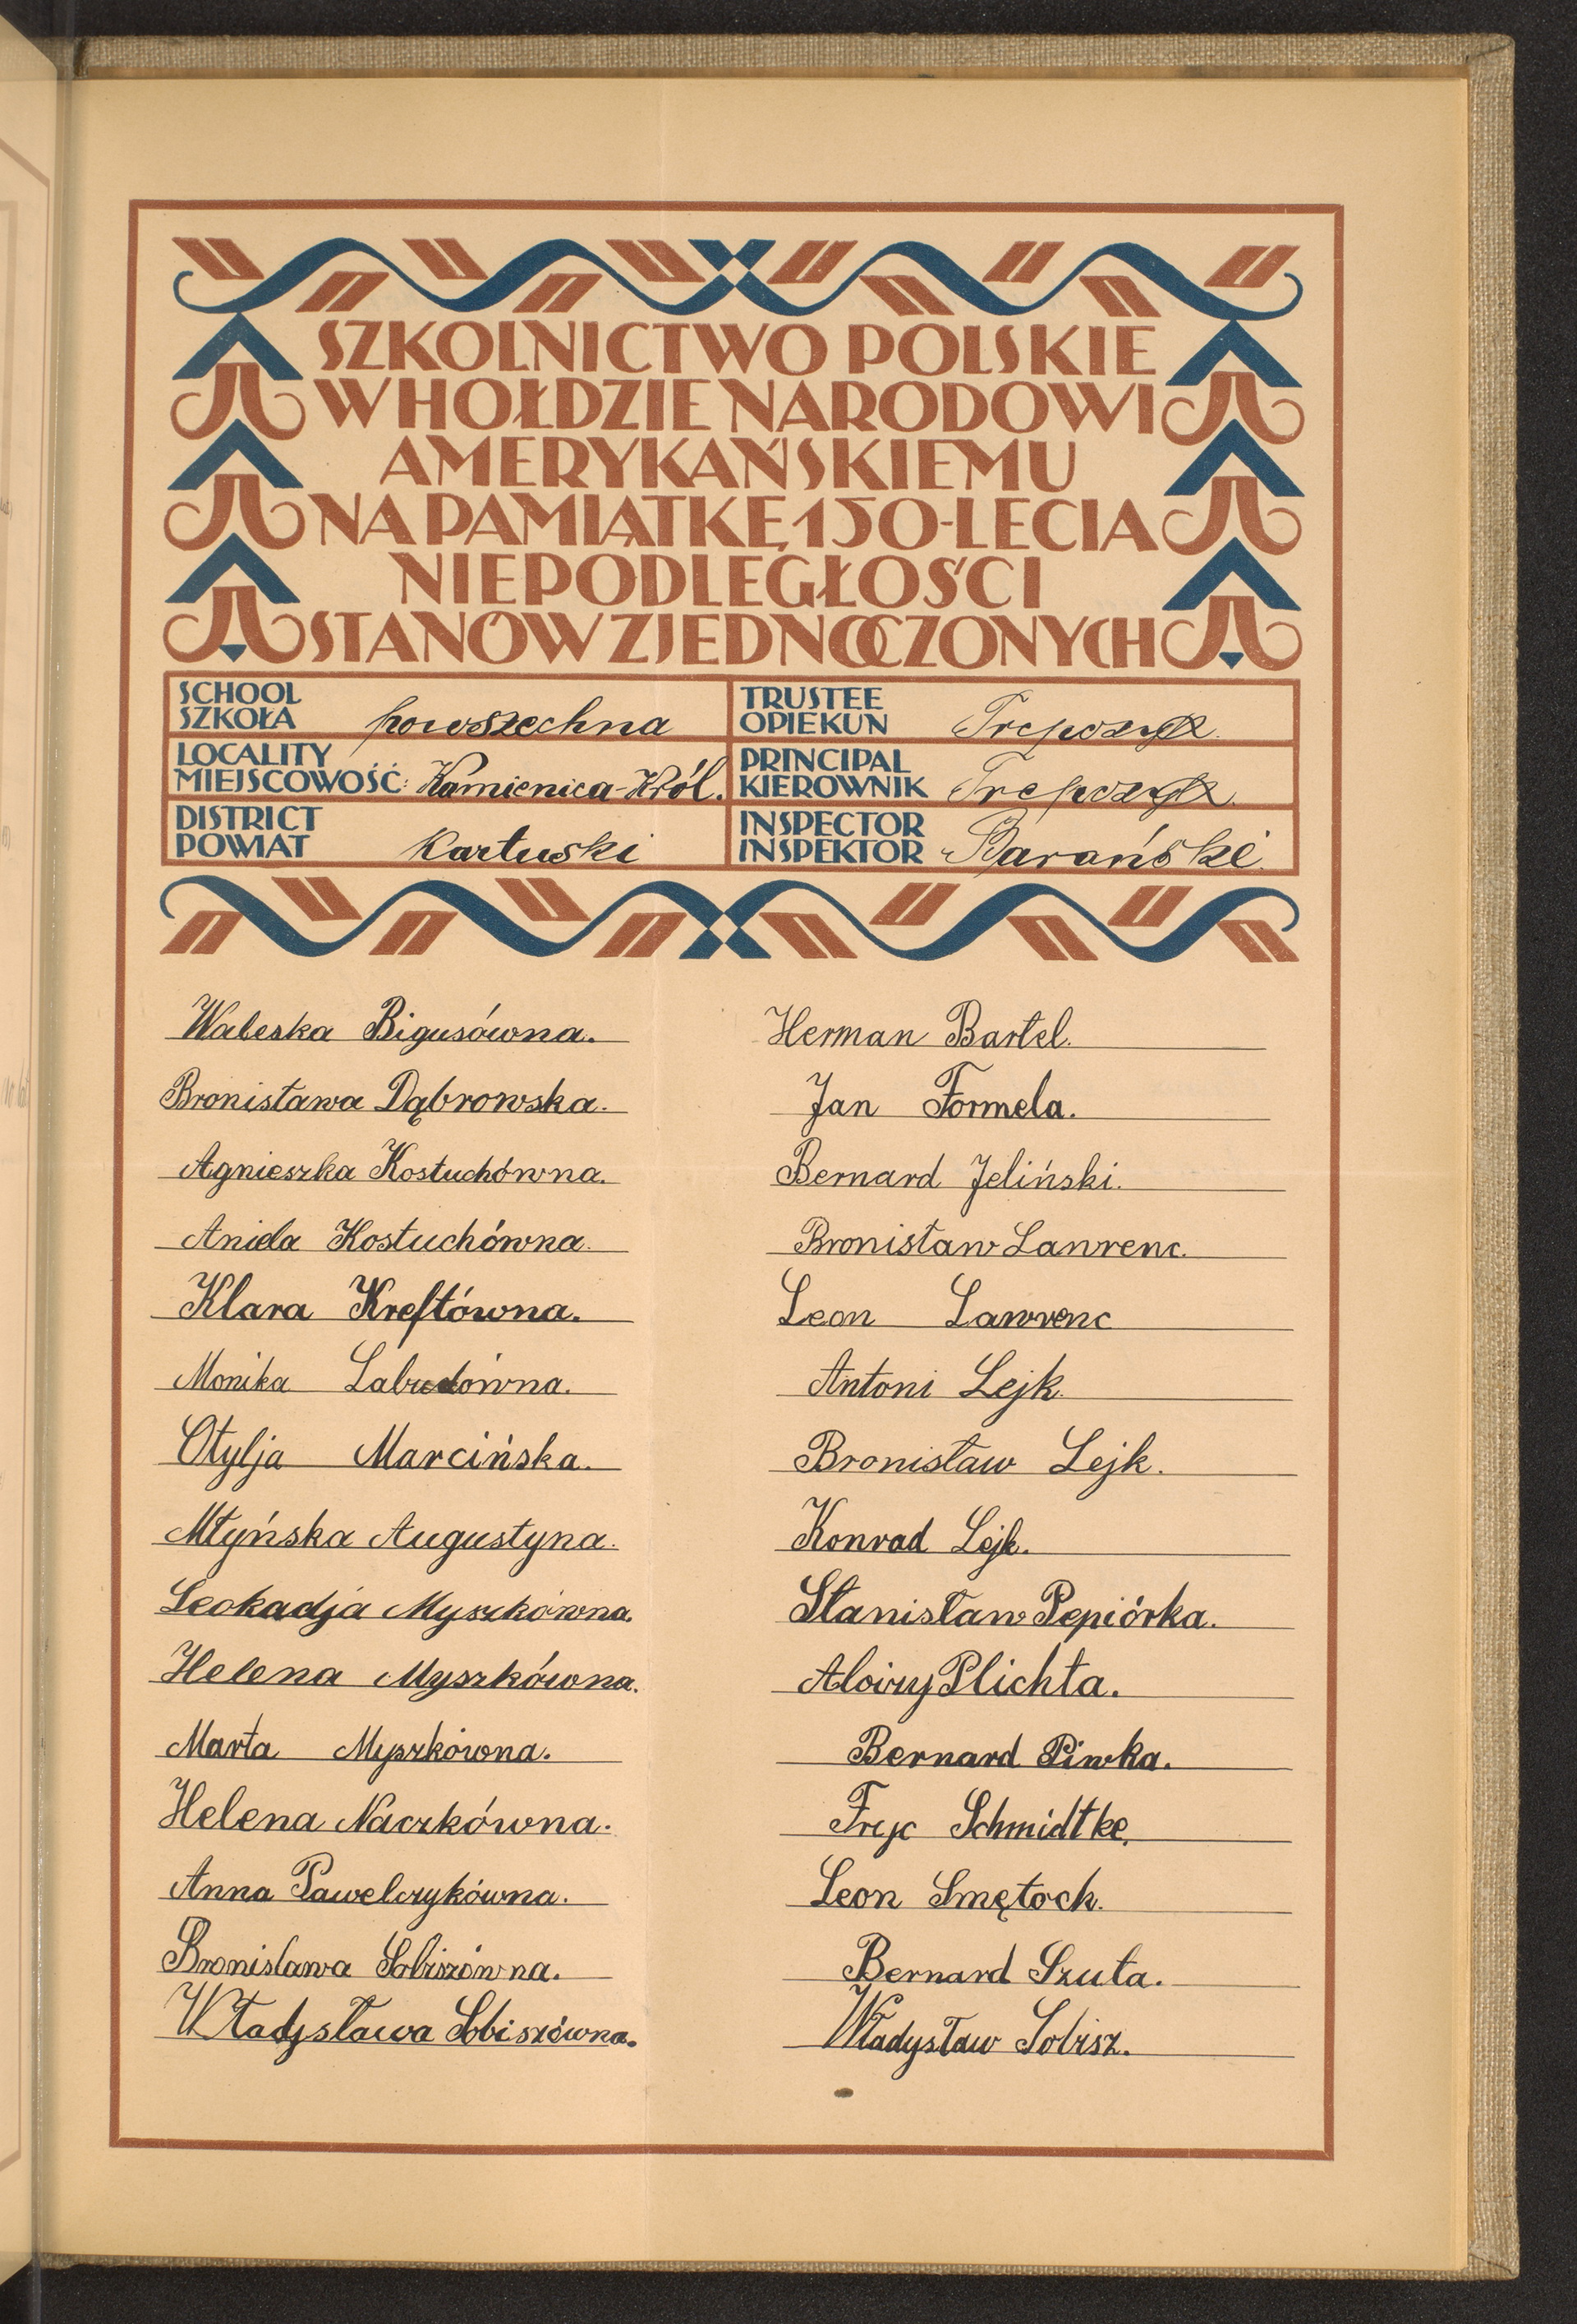 SZKOLNICTWO POLSKIE
W HOŁDZIE NARODOWI
AMERYKAŃSKIEMU
NA PAMIĄTKĘ 150-LECIA
NIEPODLEGŁOŚCI
STANÓW ZJEDNOCZONYCH
SCHOOL
SZKOŁA powszechna
TRUSTEE
OPIEKUN Trepczyk
LOCALITY
MIEJSCOWOŚĆ: Kamienica-Król.
PRINCIPAL
KIEROWNIK Trepczyk
DISTRICT
POWIAT Kartuski
INSPECTOR
INSPEKTOR Barański
Waleska Bigusówna.
Bronisława Dąbrowska.
Agnieszka Kostuchówna.
Aniela Kostuchówna.
Klara Kreftówna.
Monika Labudówna.
Otylja Marcińska.
Młyńska Augustyna.
Leokadja Myszkówna.
Helena Myszkówna.
Marta Myszkówna.
Helena Naczkówna.
Anna Pawelczykówna.
Bronisława Sobiszówna.
Władysława Sobiszówna.
Herman Bartel.
Jan Formela.
Bernard Jeliński.
Bronisław Lawrenc.
Leon Lawrenc
Antoni Lejk.
Bronisław Lejk.
Konrad Lejk.
Stanisław Pepiórka.
Aloizy Plichta.
Bernard Piwka.
Schmidtke.
Leon Smętoch.
Bernard Szuta.
Władysław Sobisz.